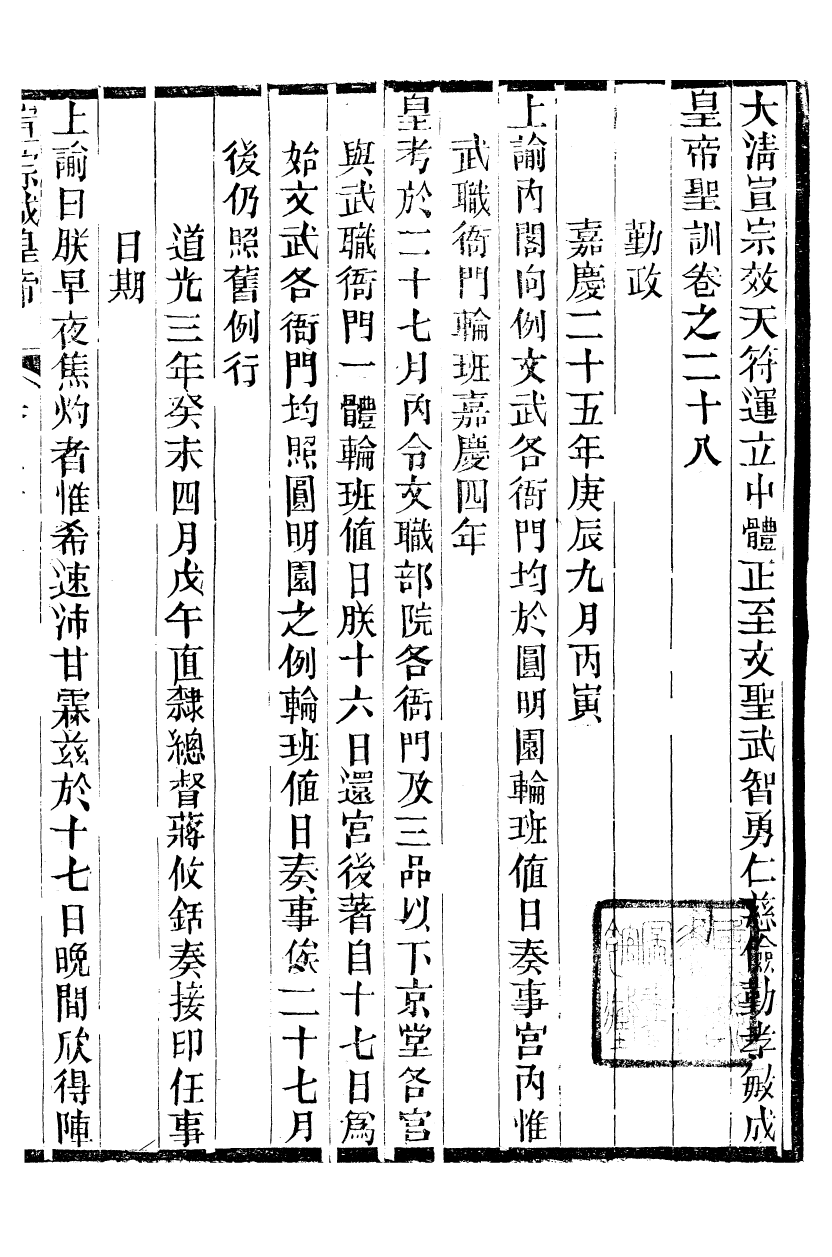 大淸宣宗效天符運立中體正至文聖武智勇仁慈儉勤孝敏成
皇帝聖訓卷之二十八
勤政
嘉慶二十五年庚辰九月丙寅
上諭內閣向例文武各衙門均於圓明園輪班値日奏事宮內惟
武職衙門輪班嘉慶四年
皇考於二十七月內令文職部院各衙門及三品以下京堂各官
與武職衙門一體輪班値日朕十六日還宮後著自十七日爲
始文武各衙門均照圓明園之例輪班値日奏事俟二十七月
後仍照舊例行
道光三年癸未四月戊午直隸總督蔣攸銛奏接印任事
日期
上諭曰朕早夜焦灼者惟希速沛甘霖茲於十七日晚間欣得陣
宣宗成皇帝